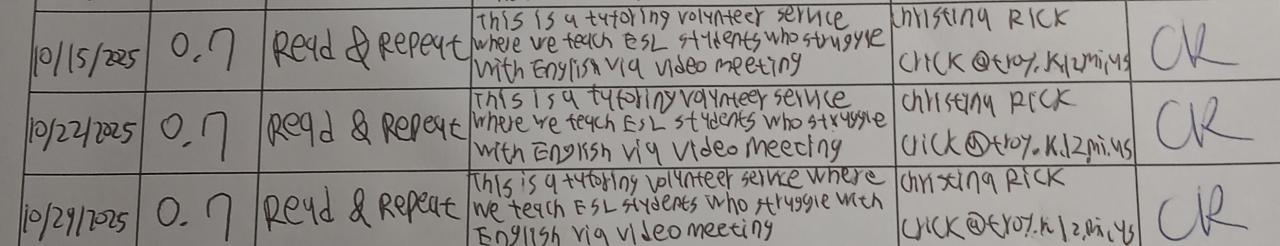 10/15/2025 0.7 Read & Repeat This is a tutoring volunteer service Christina Rick CR
where we teach ESL students who struggle crick@troy.k12mi.us
with English via video meeting
10/22/2025 0.7 Read & Repeat This is a tutoring volunteer service Christina Rick CR
where we teach ESL students who struggle crick@troy.k12mi.us
with English via video meeting
10/29/2025 0.7 Read & Repeat This is a tutoring volunteer service where Christina Rick CR
we teach ESL students who struggle with crick@troy.k12.mi.us
English via video meeting